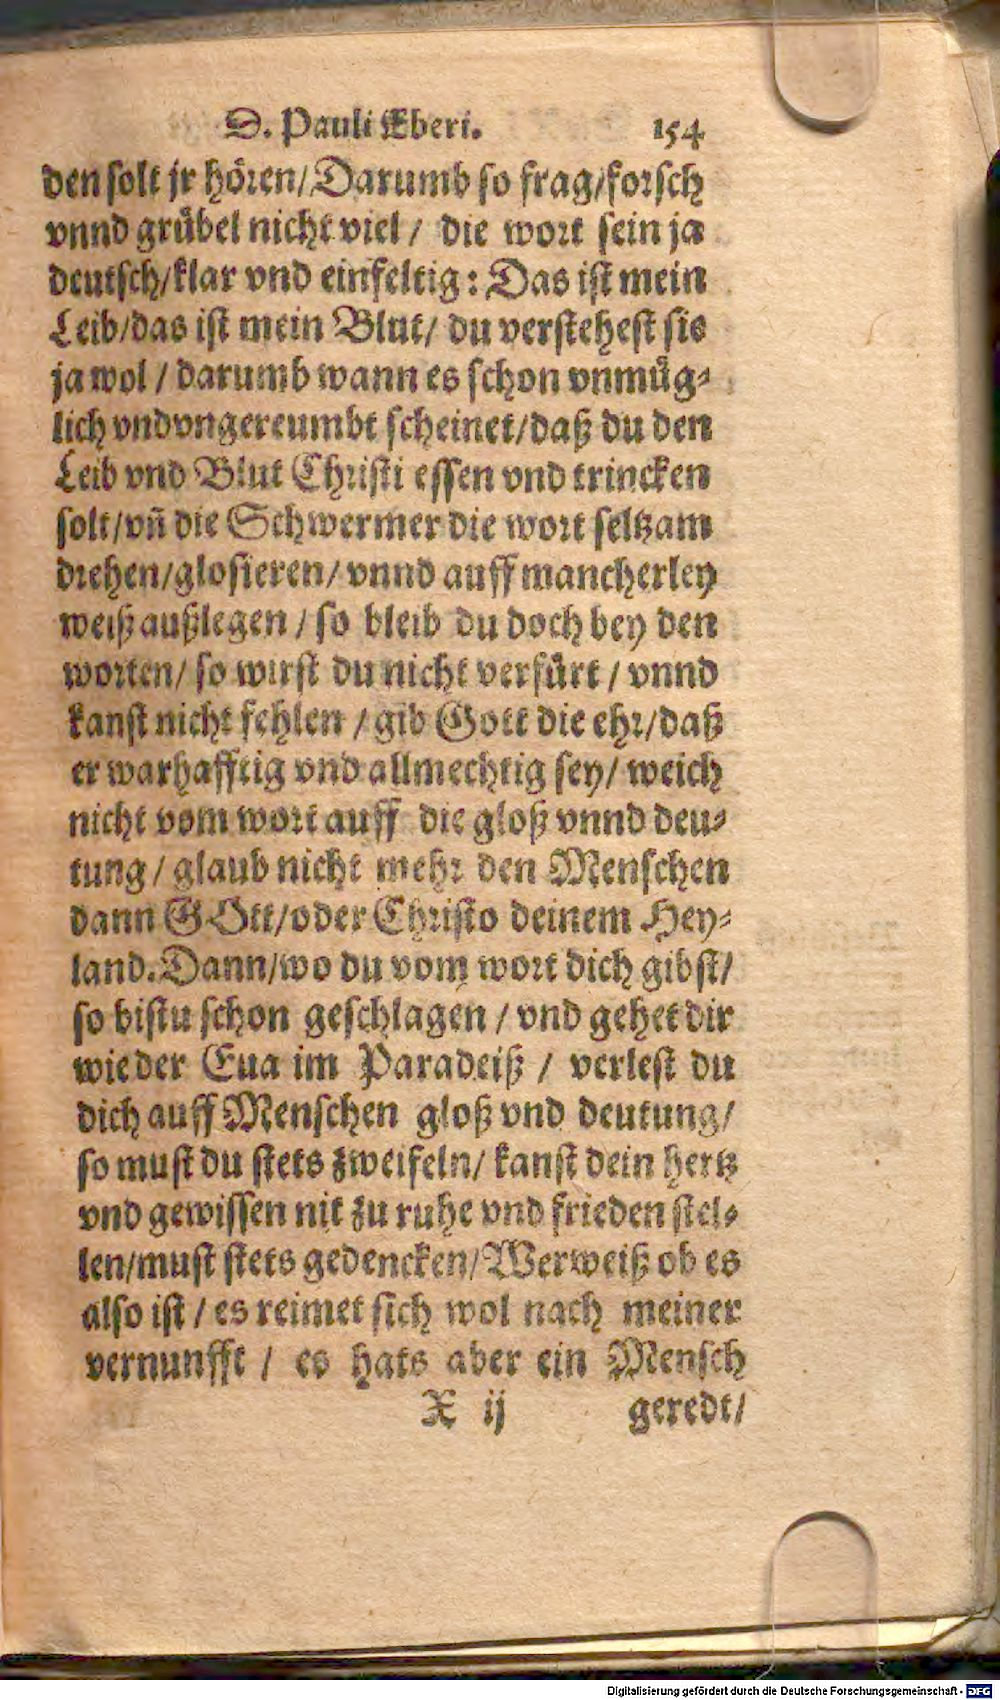 D. Pauli Eberi. 154
den solt jr hören/Darumb so frag/forsch
vnnd grübel nicht viel / die wort sein ja
deutsch/klar vnd einfeltig: Das ist mein
Leib/das ist mein Blut/ du verstehest sie
ja wol / darumb wann es schon vnmüg⸗
lich vndvngereumbt scheinet/daß du den
Leib vnd Blut Christi essen vnd trincken
solt/vñ die Schwermer die wort seltzam
drehen/glosieren/ vnnd auff mancherley
weiß außlegen / so bleib du doch bey den
worten/ so wirst du nicht verfürt / vnnd
kanst nicht fehlen / gib Gott die ehr/daß
er warhafftig vnd allmechtig sey/ weich
nicht vom wort auff die gloß vnnd deu⸗
tung / glaub nicht mehr den Menschen
dann GOtt/oder Christo deinem Hey⸗
land. Dann/wo du vom wort dich gibst/
so bistu schon geschlagen / vnd gehet dir
wie der Eua im Paradeiß / verlest du
dich auff Menschen gloß vnd deutung/
so must du stets zweifeln/ kanst dein hertz
vnd gewissen nit zu ruhe vnd frieden stel⸗
len/must stets gedencken/Wer weiß ob es
also ist / es reimet sich wol nach meiner
vernunfft / es hats aber ein Mensch
X ij geredt/
Digitalisierung gefördert durch die Deutsche Forschungsgemeinschaft - DFG